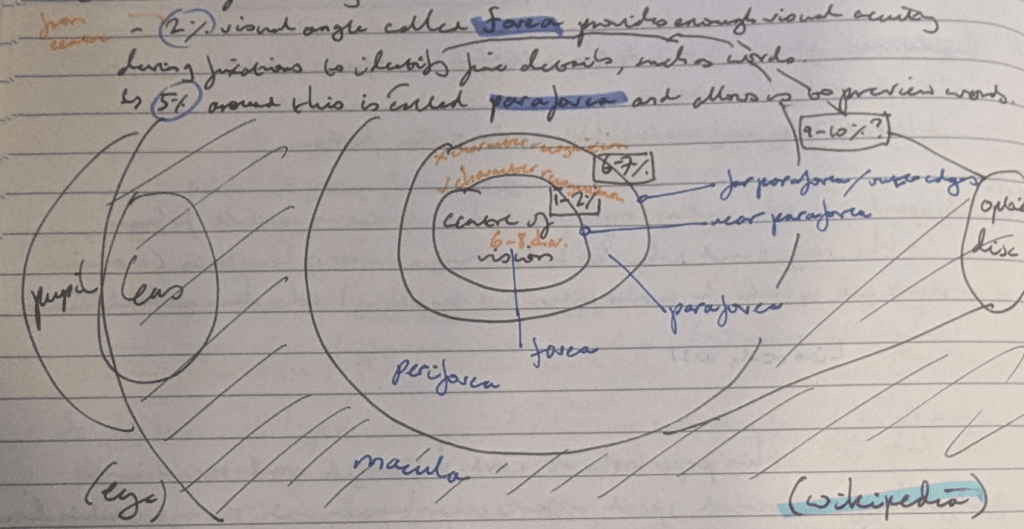 from
centre
- 2% visual angle called fovea provides enough visual acuity
during fixations to identify fine details, such as words.
↳ 5% around this is called parafovea and allows us to preview words.
9-10%?
x character recognition
6-7%
✓ character recognition
1-2%
far parafovea/outer edges
near parafovea
centre of
6-8 char.
vision
optic
disc
pupil
lens
parafovea
fovea
perifovea
macula
(eye)
(wikipedia)